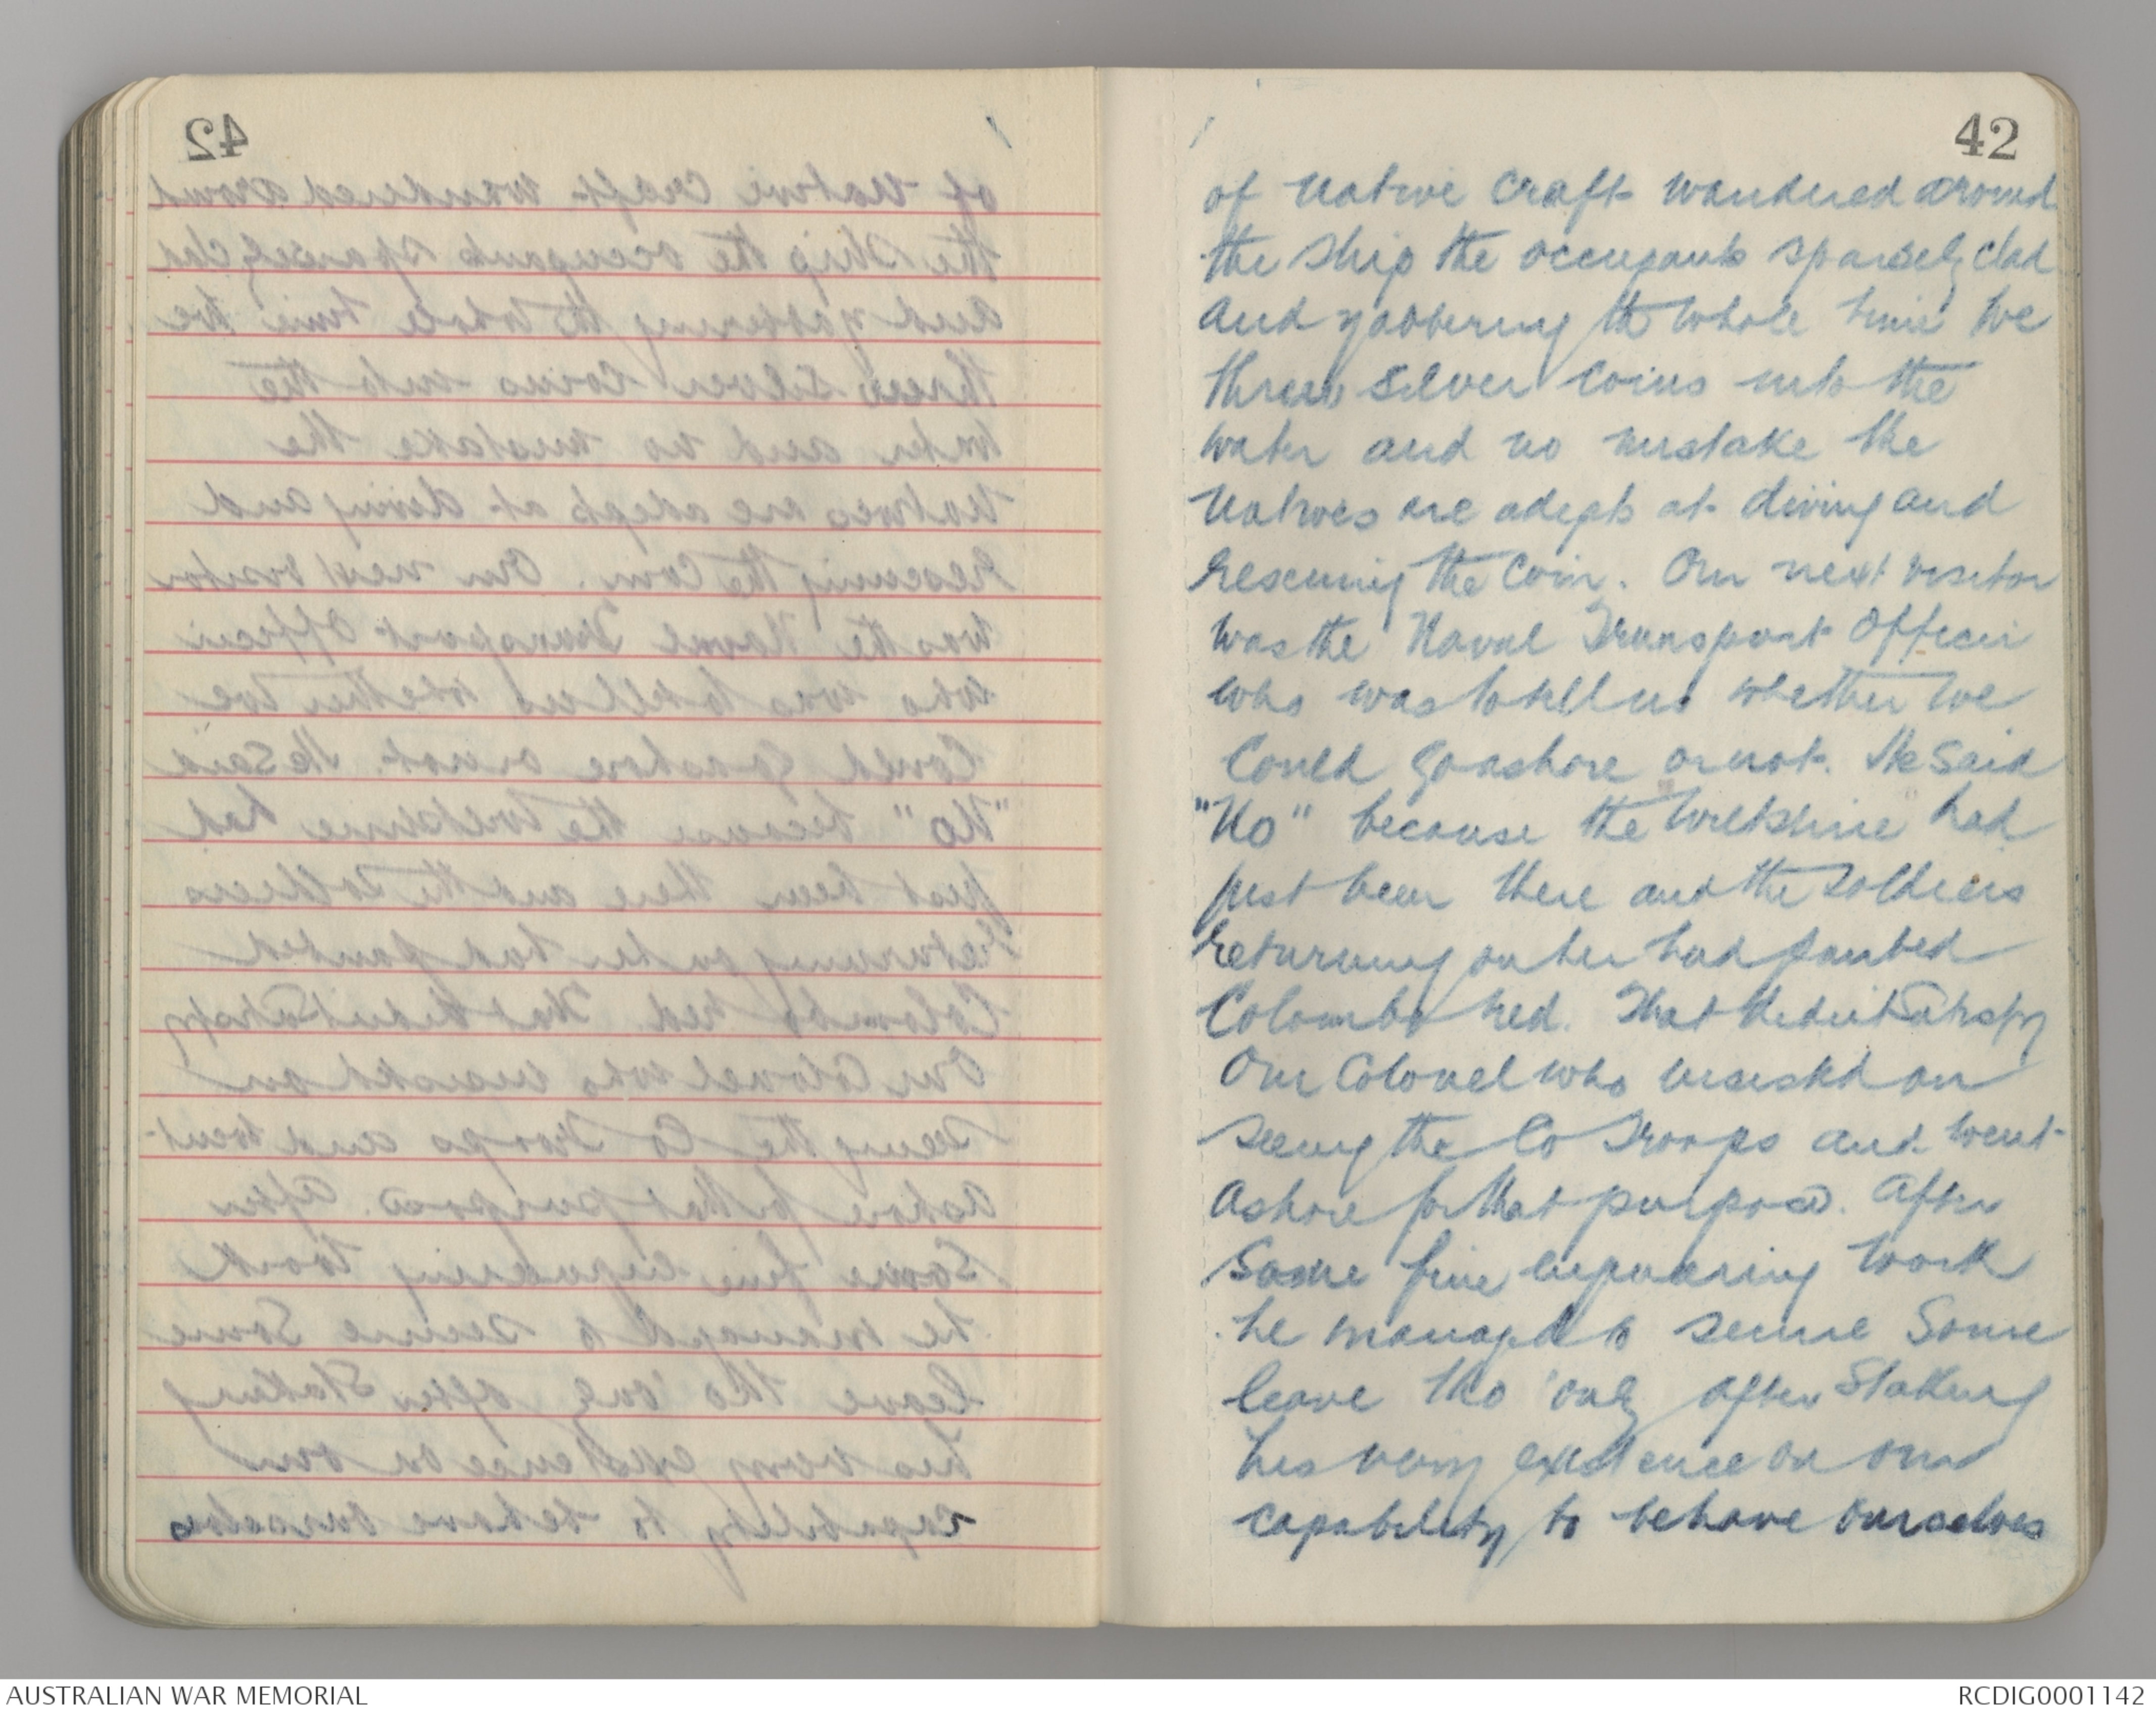 42
of native craft wandered around
the ship the occupants sparsely clad
and yabbering the whole time we
threw silver coins into the
water and no mistake the
natives are adepts at diving and
rescuing the coin. Our next visitor
was the Naval Transport Officer
who was to tell us whether we
could go ashore or not. He said
"No" because the Wiltshire had
just been there and the soldiers
returning on her had painted
Colombo red. That didn't satisfy
Our Colonel who insisted on
seeing the Co Troops and went
Ashore for that purpose. After
Some fine engineering work
he managed to secure Some
leave tho' only after Staking
his very existence on our
capability to behave ourselves
AUSTRALIAN WAR MEMORIAL
RCDIG0001142